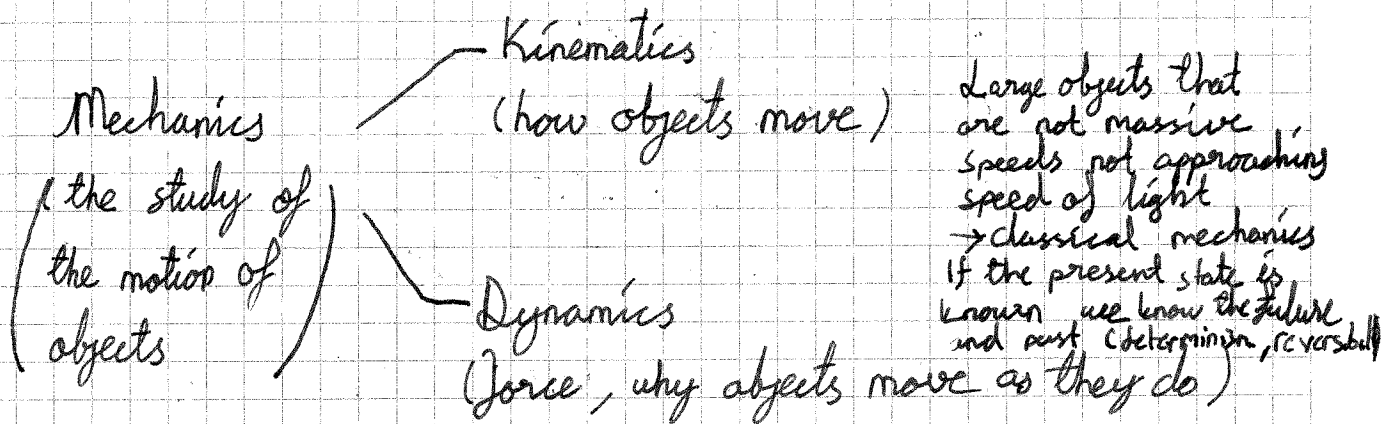 Mechanics
(the study of
the motion of
objects)
Kinematics
(how objects move)
Dynamics
(force, why objects move as they do)
Large objects that
are not massive
speeds not approaching
speed of light
→ classical mechanics
If the present state is
known we know the future
and past (determinism,